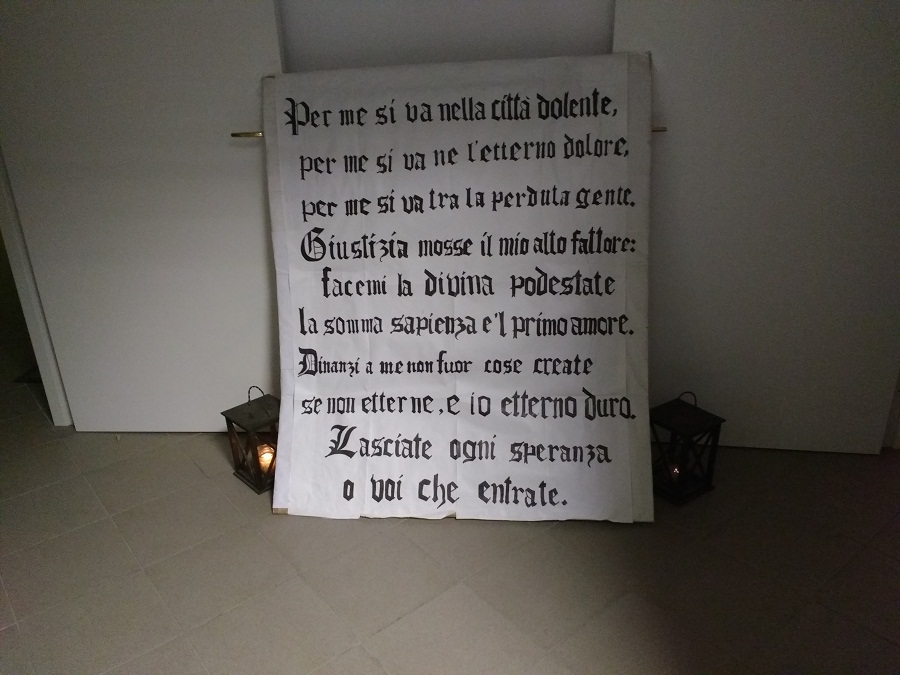 Per me si va nella città dolente,
per me si va ne l'etterno dolore,
per me si va tra la perduta gente.
Giustizia mosse il mio alto fattore:
facemi la divina podestate
la somma sapienza e'l primo amore.
Dinanzi a me non fuor cose create
se non etterne, e io etterno duro.
Lasciate ogni speranza
o voi che entrate.